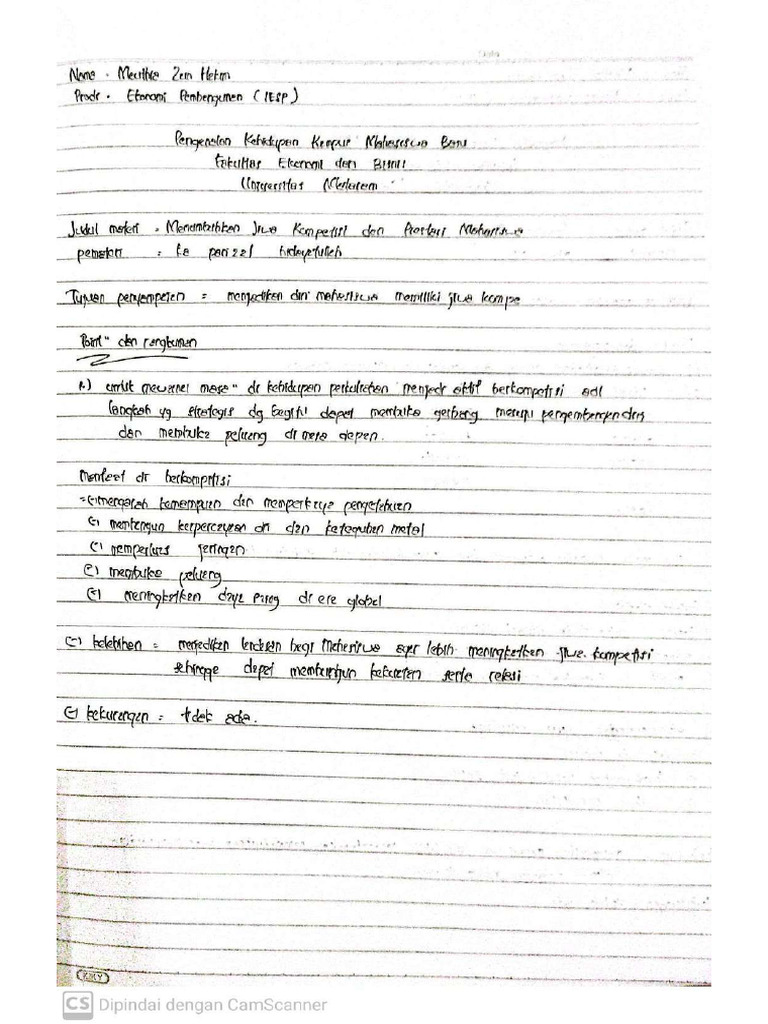 Nama . Zein Hakim
Prodi . Ekonomi Pembangunan (IESP)
Pengenalan Kehidupan Kampus Mahasiswa Baru
Fakultas Ekonomi dan Bisnis
Universitas Mataram
Judul materi . Menumbuhkan Jiwa Kompetisi dan Prestasi Mahasiswa
pemateri =
Tujuan penyampaian = menjadikan diri mahasiswa memiliki jiwa kompe
Point" dan rangkuman
1.) untuk mengawali masa" di kehidupan perkuliahan menjadi aktif berkompetisi adl
langkah yg strategis dg begitu dapat membuka gerbang menuju pengembangan diri
dan membuka peluang di masa depan.
manfaat dr berkompetisi
= (-) mengasah kemampuan dan memperkaya pengetahuan
(-) membangun kepercayaan diri dan keteguhan mental
(-) memperluas jaringan
(-) membuka peluang
(-) meningkatkan daya saing di era global
(-) kelebihan = menjadikan landasan bagi mahasiswa agar lebih meningkatkan jiwa kompetisi
sehingga dapat membangun serta relasi
(-) kekurangan = tdak ada.
KIKY
CS Dipindai dengan CamScanner